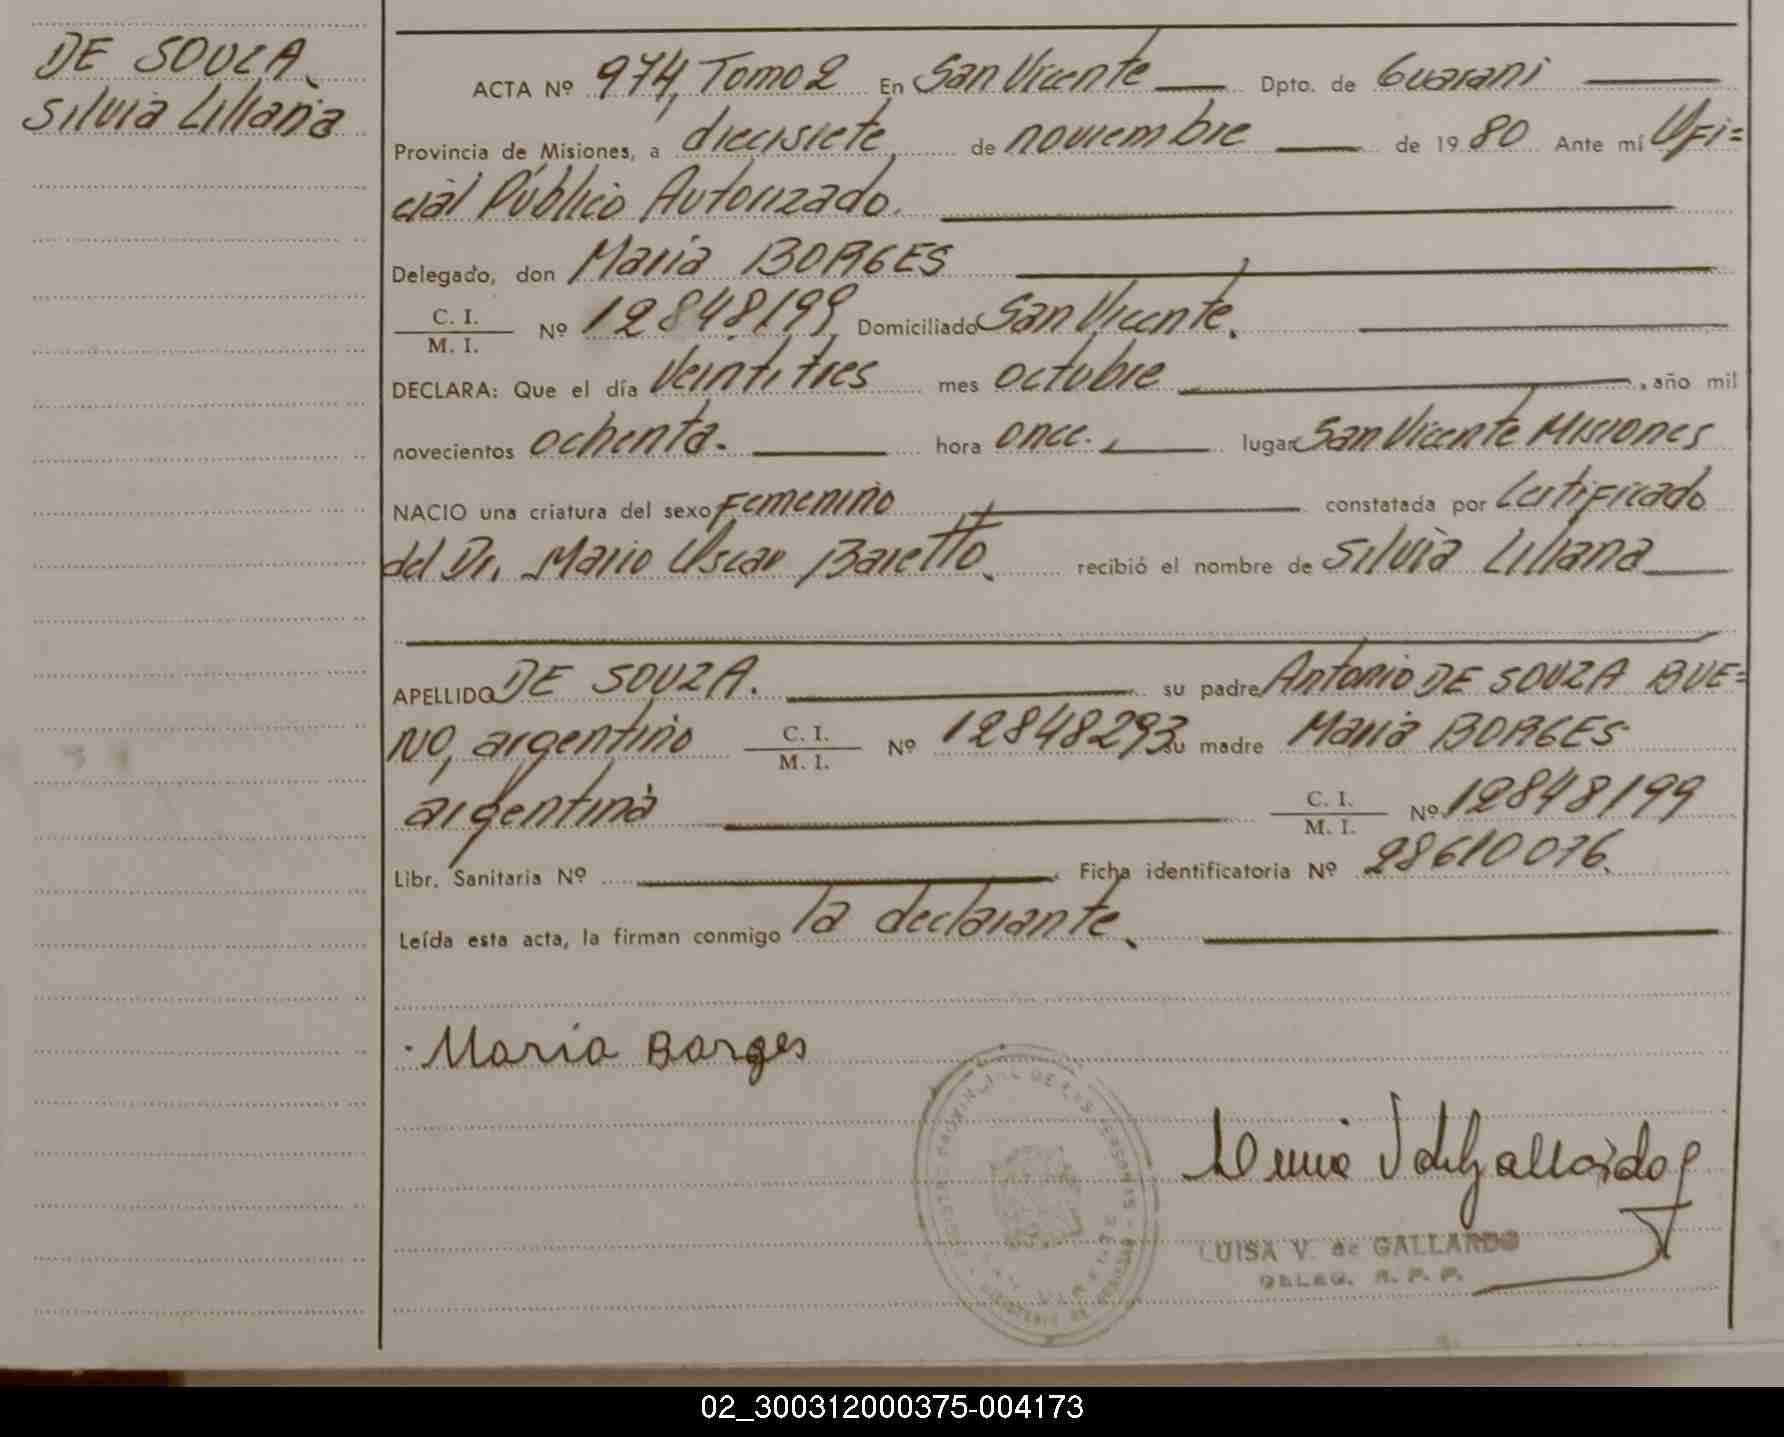 DE SOUZA
Silvia Liliana
ACTA Nº 974, Tomo 2 En San Vicente Dpto. de Guarani
Provincia de Misiones, a diecisiete de noviembre de 1980 Ante mí Ofi=
cial Público Autorizado.
Delegado, don Maria BORGES
C. I.
M. I. Nº 12848199 Domiciliado San Vicente.
DECLARA: Que el día Veintitres mes octubre , año mil
novecientos ochenta. hora once. lugar San Vicente Misiones
NACIO una criatura del sexo Femenino constatada por Certificado
del Dr. Mario Oscar Baretto. recibió el nombre de Silvia Liliana
APELLIDO DE SOUZA. su padre Antonio DE SOUZA BUE=
NO, argentino C. I. M. I. Nº 12848293 su madre Maria BORGES
argentina C. I. M. I. Nº 12848199
Libr. Sanitaria Nº Ficha identificatoria Nº 28610076.
Leída esta acta, la firman conmigo la declarante.
Maria Borges
LUISA V. de GALLARDO
DELEG. R. P. P.
02_300312000375-004173